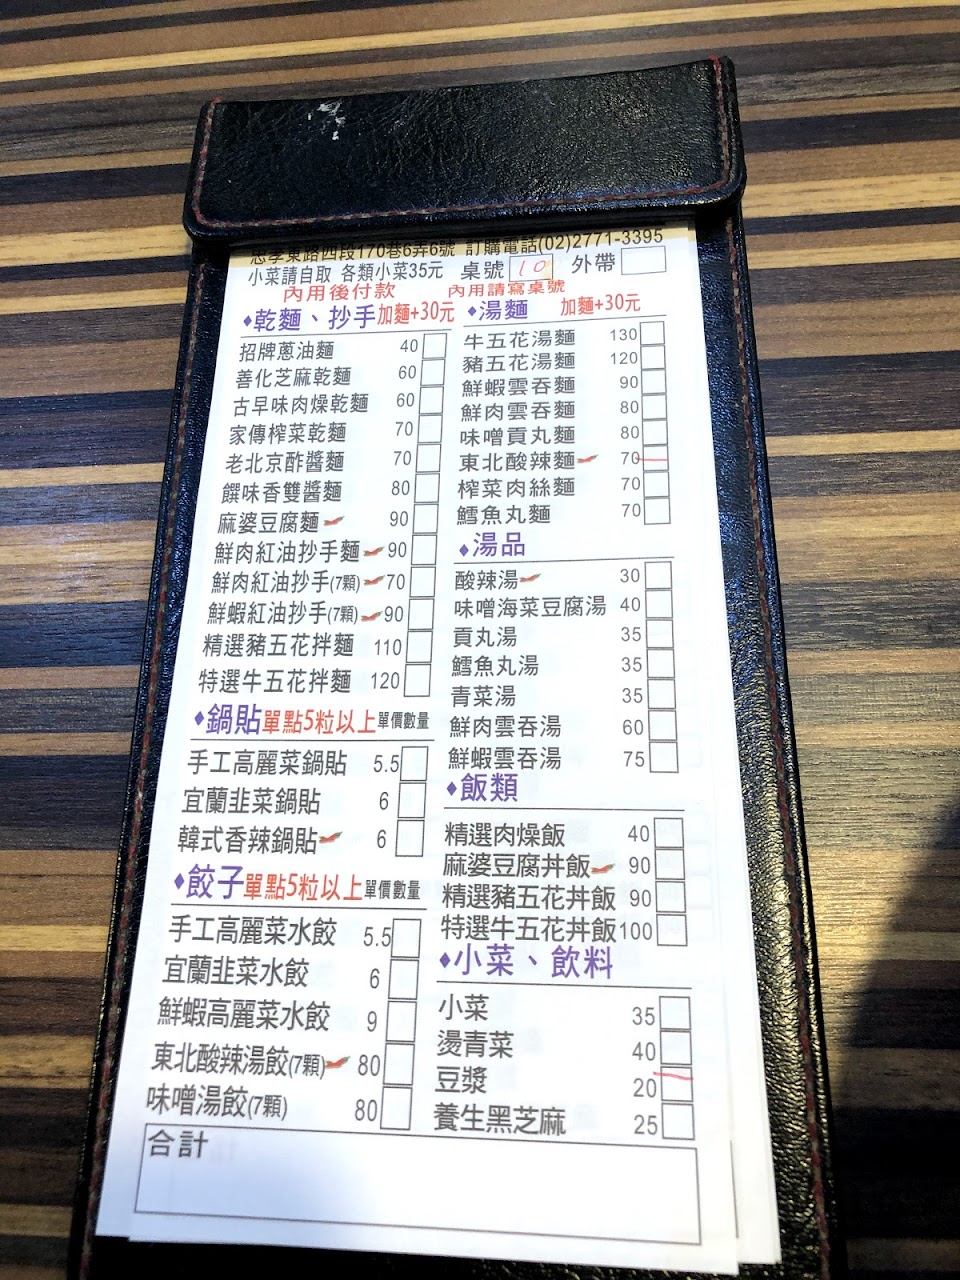 忠孝東路四段170巷6弄6號 訂購電話(02)2771-3395
小菜請自取 各類小菜35元 桌號 10 外帶
內用後付款 內用請寫桌號
◆乾麵、抄手 加麵+30元
招牌蔥油麵 40
善化芝麻乾麵 60
古早味肉燥乾麵 60
家傳榨菜乾麵 70
老北京酢醬麵 70
饌味香雙醬麵 80
麻婆豆腐麵 90
鮮肉紅油抄手麵 90
鮮肉紅油抄手(7顆) 70
鮮蝦紅油抄手(7顆) 90
精選豬五花拌麵 110
特選牛五花拌麵 120
◆鍋貼 單點5粒以上 單價數量
手工高麗菜鍋貼 5.5
宜蘭韭菜鍋貼 6
韓式香辣鍋貼 6
◆餃子 單點5粒以上 單價數量
手工高麗菜水餃 5.5
宜蘭韭菜水餃 6
鮮蝦高麗菜水餃 9
東北酸辣湯餃(7顆) 80
味噌湯餃(7顆) 80
◆湯麵 加麵+30元
牛五花湯麵 130
豬五花湯麵 120
鮮蝦雲吞麵 90
鮮肉雲吞麵 80
味噌貢丸麵 80
東北酸辣麵 70
榨菜肉絲麵 70
鱈魚丸麵 70
◆湯品
酸辣湯 30
味噌海菜豆腐湯 40
貢丸湯 35
鱈魚丸湯 35
青菜湯 35
鮮肉雲吞湯 60
鮮蝦雲吞湯 75
◆飯類
精選肉燥飯 40
麻婆豆腐丼飯 90
精選豬五花丼飯 90
特選牛五花丼飯 100
◆小菜、飲料
小菜 35
燙青菜 40
豆漿 20
養生黑芝麻 25
合計